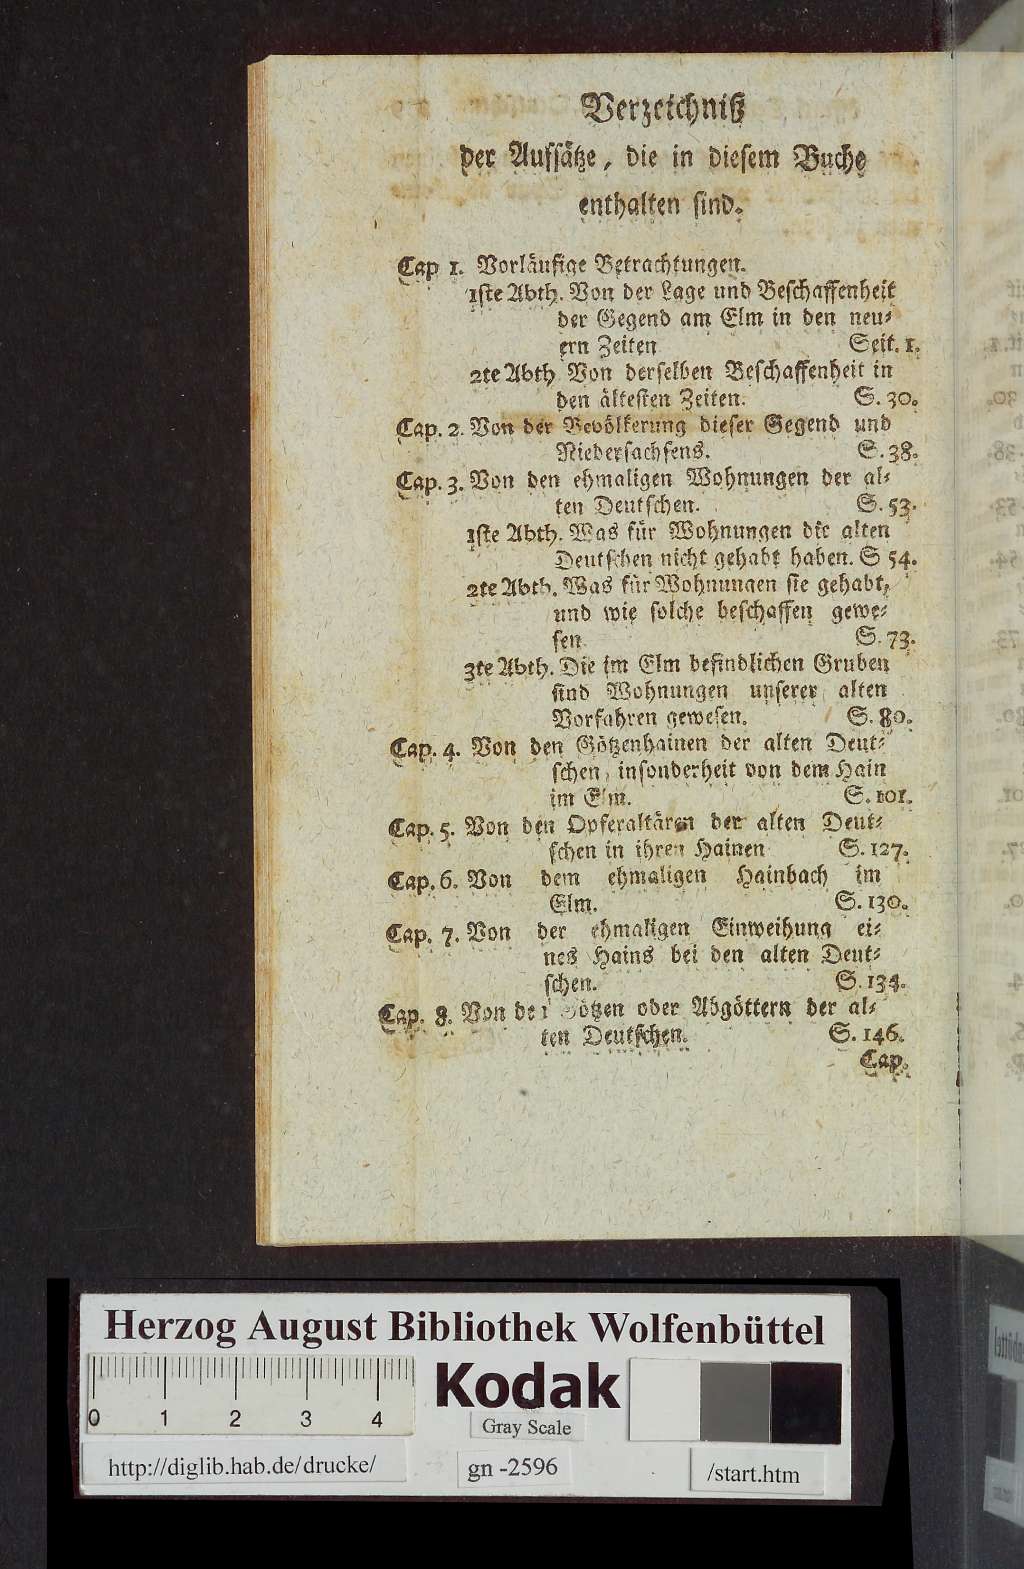 Verzeichniß
der Aufsätze, die in diesem Buche
enthalten sind.
Cap 1. Vorläufige Betrachtungen.
1ste Abth. Von der Lage und Beschaffenheit
der Gegend am Elm in den neu-
ern Zeiten Seit. 1.
2te Abth Von derselben Beschaffenheit in
den ältesten Zeiten. S. 30.
Cap. 2. Von der Bevölkerung dieser Gegend und
Niedersachsens. S. 38.
Cap. 3. Von den ehmaligen Wohnungen der al-
ten Deutschen. S. 53.
1ste Abth. Was für Wohnungen die alten
Deutschen nicht gehabt haben. S 54.
2te Abth. Was für Wohnungen sie gehabt,
und wie solche beschaffen gewe-
sen S. 73.
3te Abth. Die im Elm befindlichen Gruben
sind Wohnungen unserer alten
Vorfahren gewesen. S. 80.
Cap. 4. Von den Götzenhainen der alten Deut-
schen, insonderheit von dem Hain
im Elm. S. 101.
Cap. 5. Von den Opferaltären der alten Deut-
schen in ihren Hainen S. 127.
Cap. 6. Von dem ehmaligen Hainbach im
Elm. S. 130.
Cap. 7. Von der ehmaligen Einweihung ei-
nes Hains bei den alten Deut-
schen. S. 134.
Cap. 8. Von den Götzen oder Abgöttern der al-
ten Deutschen. S. 146.
Cap.
Herzog August Bibliothek Wolfenbüttel
0 1 2 3 4
Kodak
Gray Scale
http://diglib.hab.de/drucke/ gn -2596 /start.htm